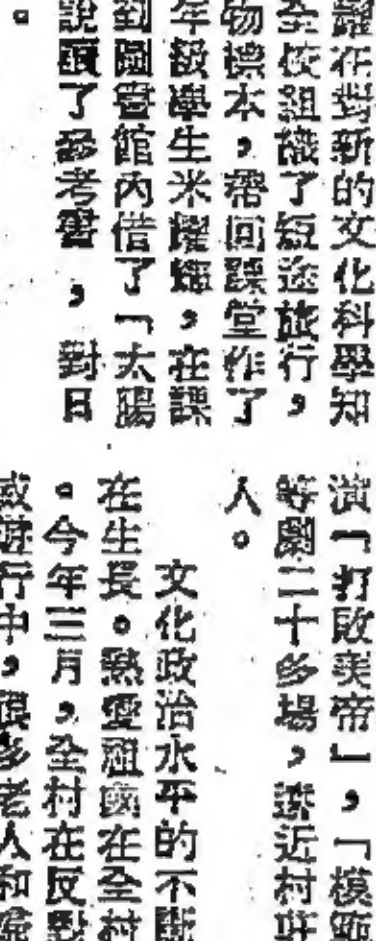 躍在對新的文化科學知
全校組織了短途旅行，
物標本，帶回課堂作了
年級學生米躍輝，在課
到圖書館內借了「太陽
說讀了參考書，對日
。
演「打敗美帝」，「模範
等劇二十多場，讓近村莊
人。
文化政治水平的不斷
在生長。熱愛祖國在全村
。今年三月，全村在反對
或遊行中，很多老人和